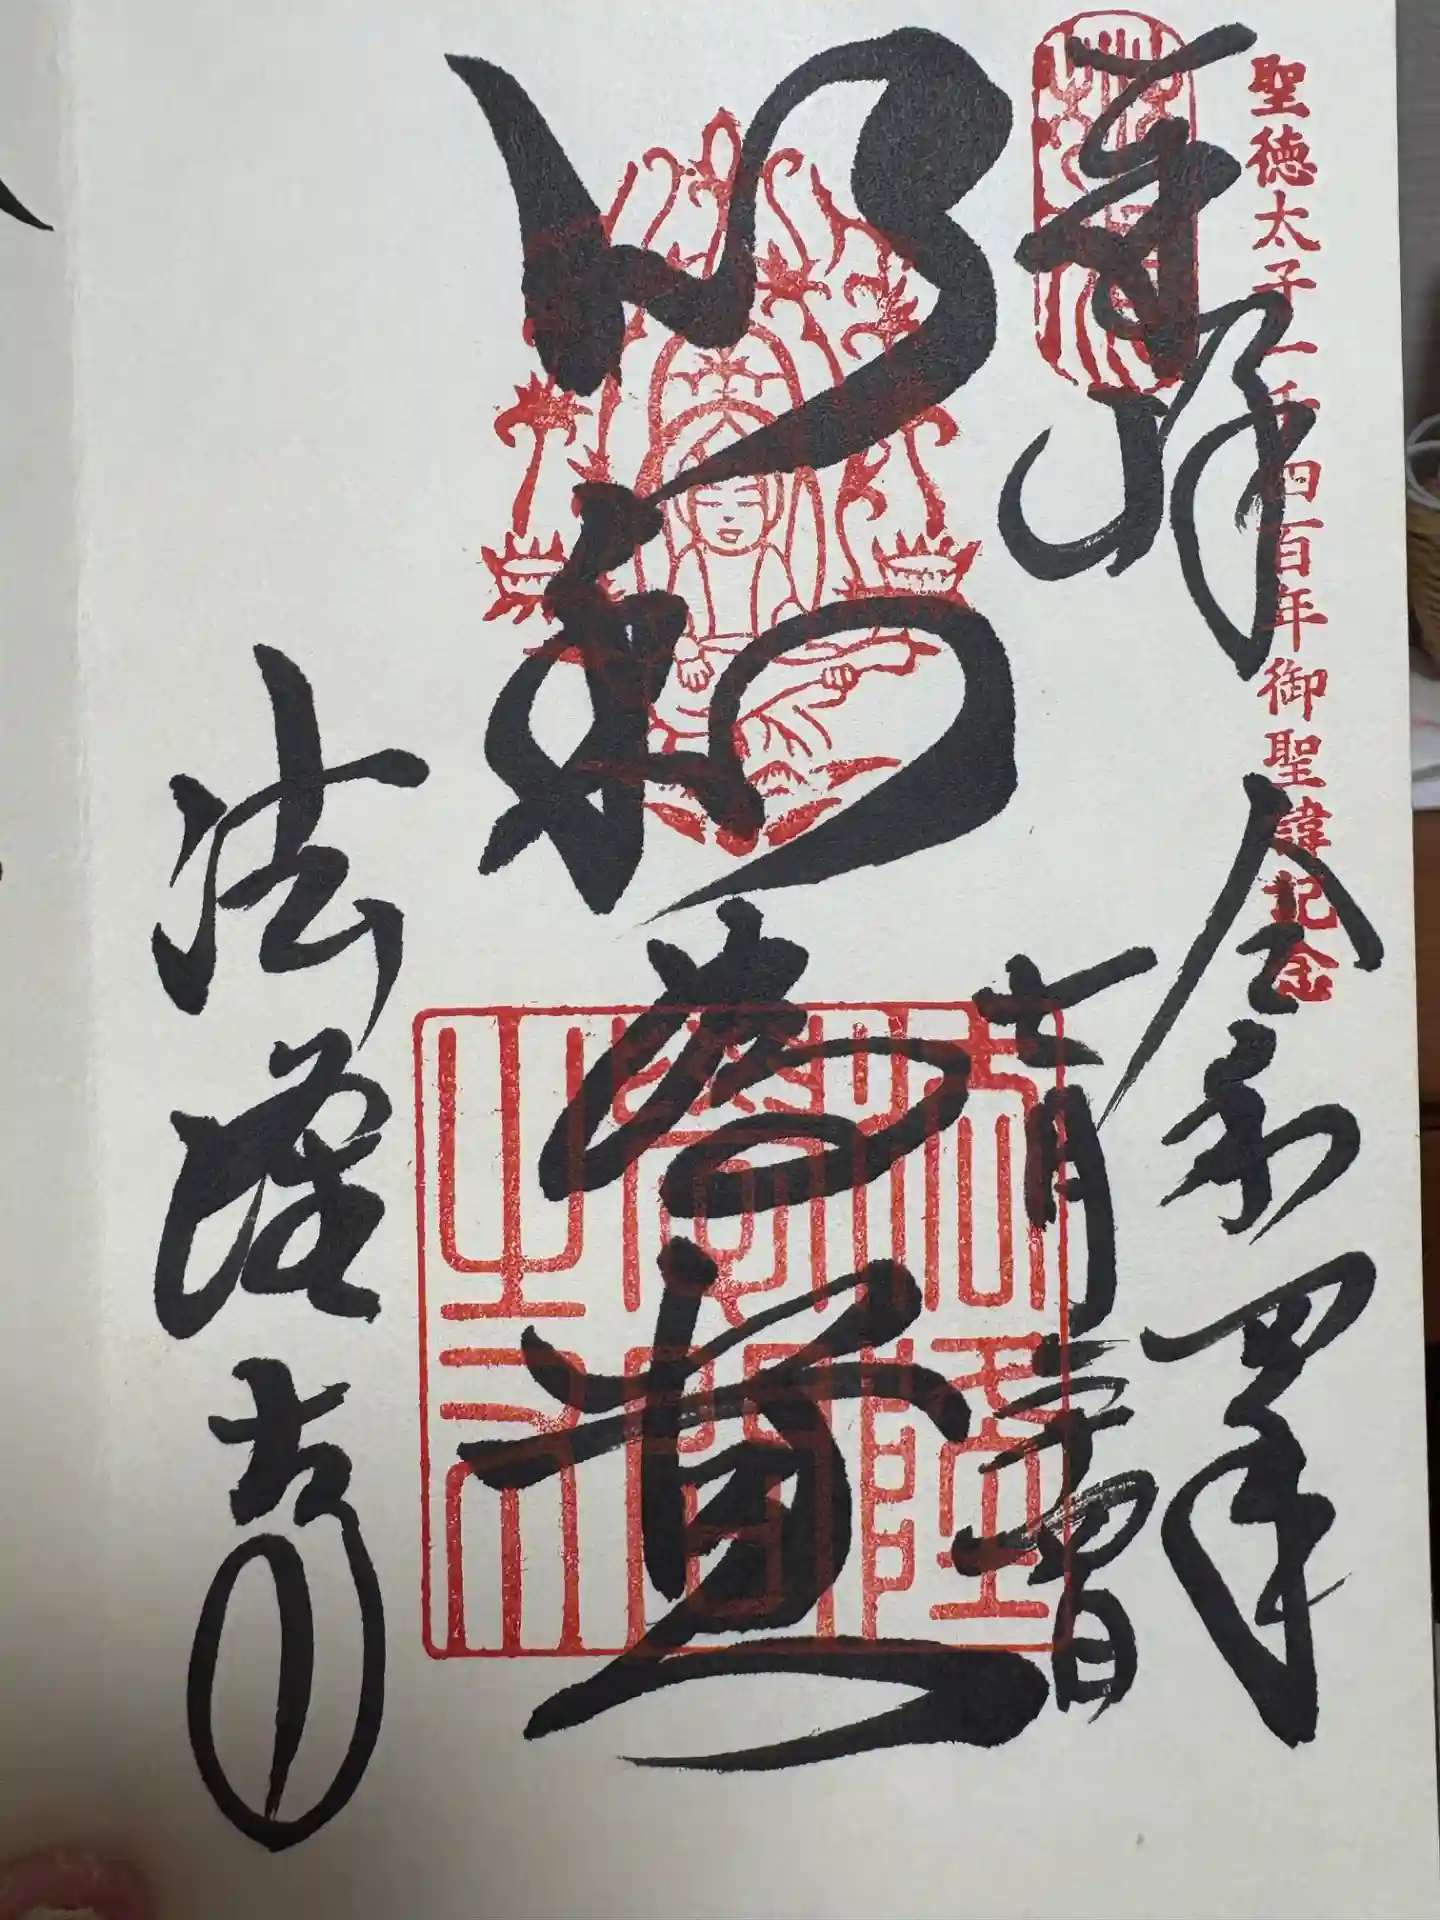 聖徳太子一千四百年御聖諱記念
奉拝 令和四年
七月 日
以和為貴
法隆寺